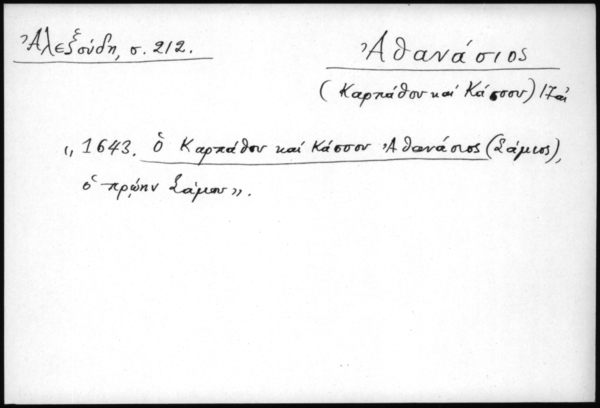 Ἀλεξούδη, σ. 212.
Ἀθανάσιος
(Καρπάθου καί Κάσσου) 17 αἰ
„1643. ὁ Καρπάθου καί Κάσσου Ἀθανάσιος (Σάμιος),
ὁ πρῴην Σάμου”.